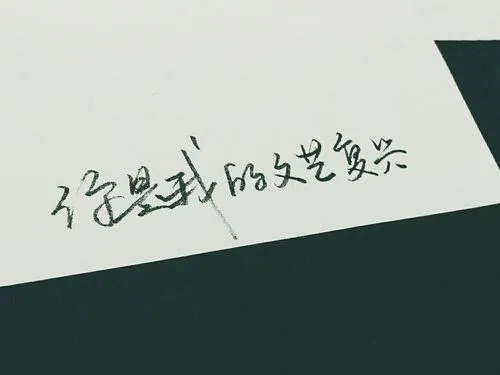 你是我的文艺复兴